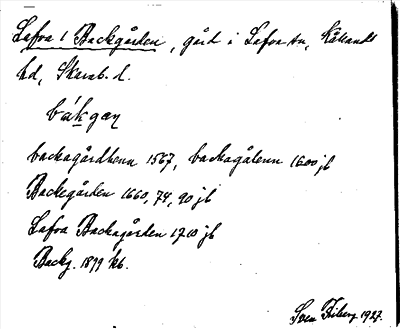 Lafva 1 Backgården, gård i Lafva sn, Kållands
hd, Skarab. l.
bákgaṇ
backagårdhenn 1567, backagålenn 1600 jb
Backegården 1660, 74, 90 jb
Lafva Backagården 1710 jb
Backg. 1899 kb.
Sven Ekberg 1927.